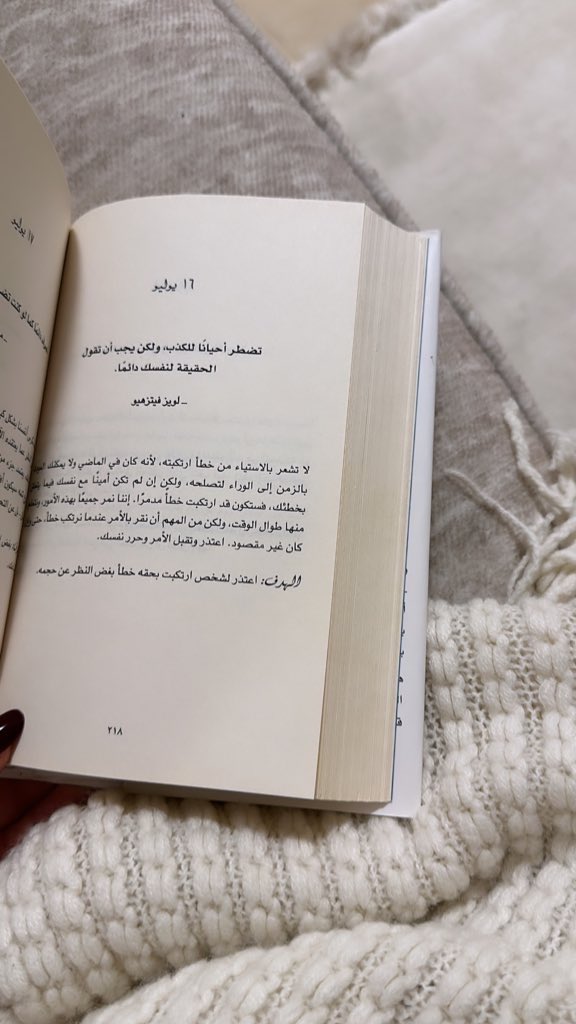 ١٦ يوليو
تضطر أحيانًا للكذب، ولكن يجب أن تقول
الحقيقة لنفسك دائمًا.
- لويز فيتزهيو
لا تشعر بالاستياء من خطأ ارتكبته، لأنه كان في الماضي ولا يمكنك
بالزمن إلى الوراء لتصلحه، ولكن إن لم تكن أمينًا مع نفسك فيما
بخطئك، فستكون قد ارتكبت خطأ مدمرًا. إننا نمر جميعًا بهذه الأمور،
منها طوال الوقت، ولكن من المهم أن نقر بالأمر عندما نرتكب خطأ.
كان غير مقصود. اعتذر وتقبل الأمر وحرر نفسك.
الهدف: اعتذر لشخص ارتكبت بحقه خطأ بغض النظر عن حجمه.
٢١٨
١٧ يوليو